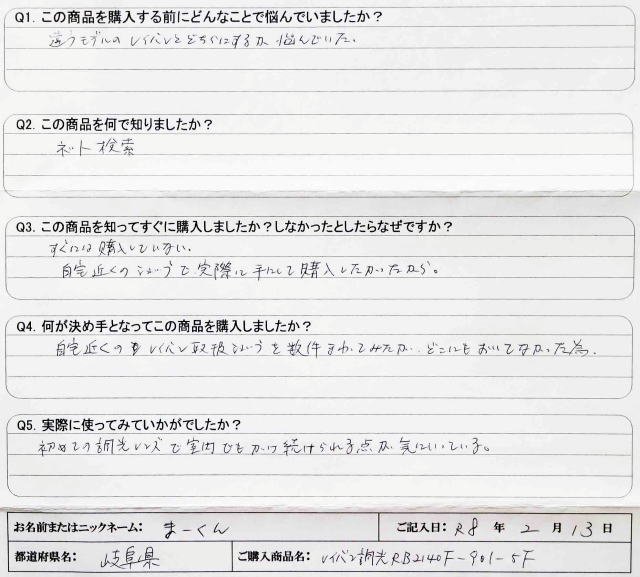 Q1. この商品を購入する前にどんなことで悩んでいましたか？
違うモデルのレイバンとどちらにするか悩んでいた。
Q2. この商品を何で知りましたか？
ネット検索
Q3. この商品を知ってすぐに購入しましたか？しなかったとしたらなぜですか？
すぐには購入していない.
自宅近くのショップで実際に手にして購入したかったから。
Q4. 何が決め手となってこの商品を購入しましたか？
自宅近くのレイバン取扱ショップを数件まわってみたが、どこにもおいてなかった為.
Q5. 実際に使ってみていかがでしたか？
初めての調光レンズで室内でもかけ続けられる点が気にいっている。
お名前またはニックネーム： まーくん ご記入日： R8 年 2 月 13 日
都道府県名： 岐阜県 ご購入商品名： レイバン調光RB2140F-901-5F